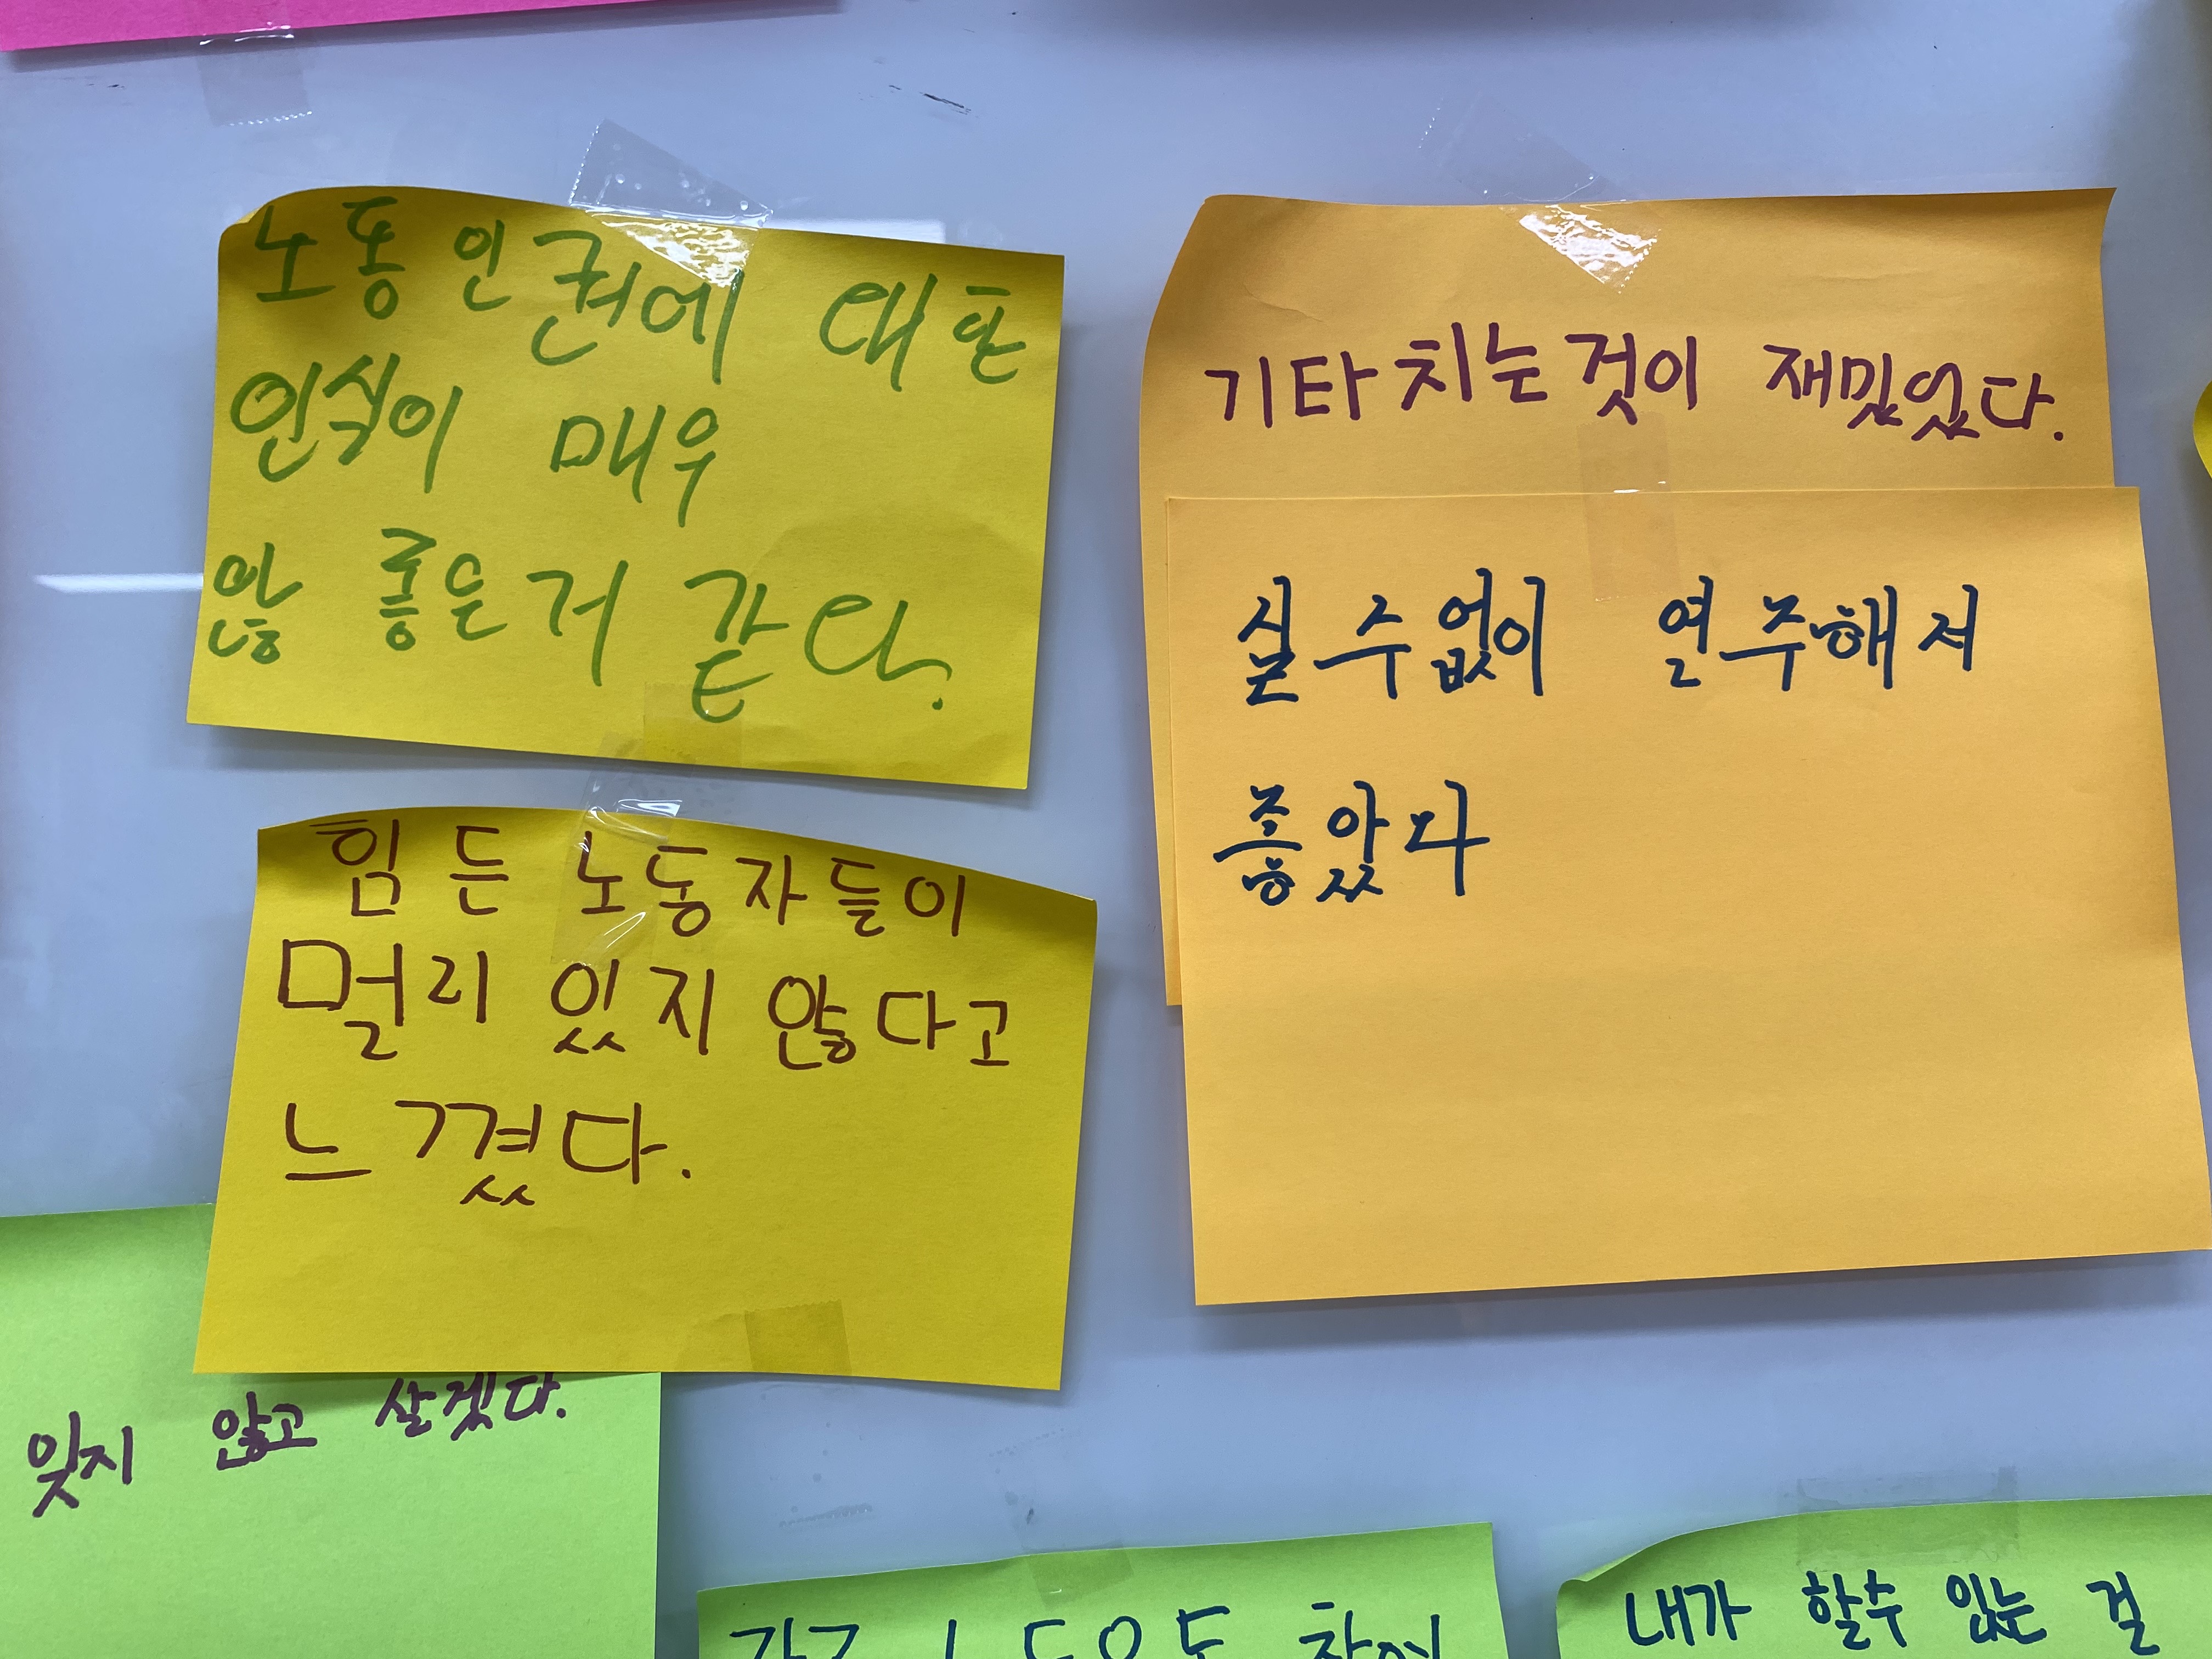 노동인권에 대한
인식이 매우
않 좋은거 같다.
힘든 노동자들이
멀리 있지 않다고
느꼈다.
잊지 않고 살겠다.
기타치는것이 재밌었다.
실수없이 연주해서
좋았다
내가 할수 있는 걸